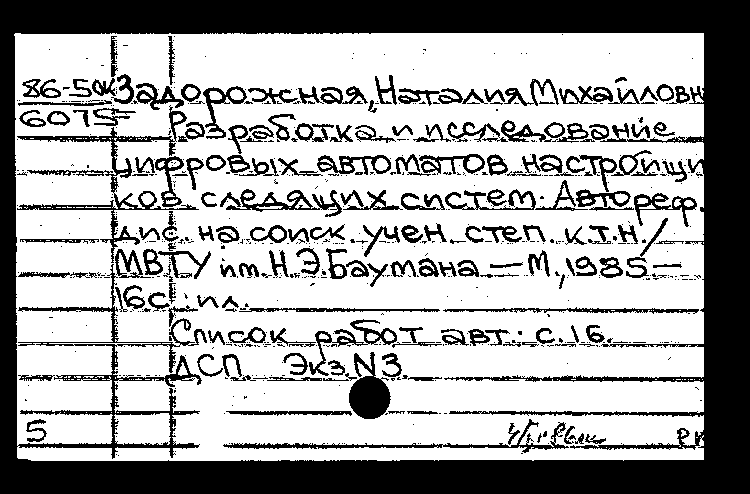 86-5 Задорожная, Наталия Михайловн
6075 Разработка и исследование
цифровых автоматов настройщи
ков следящих систем. Автореф.
дис. на соиск. учен. степ. к.т.н./
МВТУ им. Н.Э.Баумана — М., 1985 —
16с : ил.
Список работ авт.: с.16.
ДСП. Экз.N3.
5